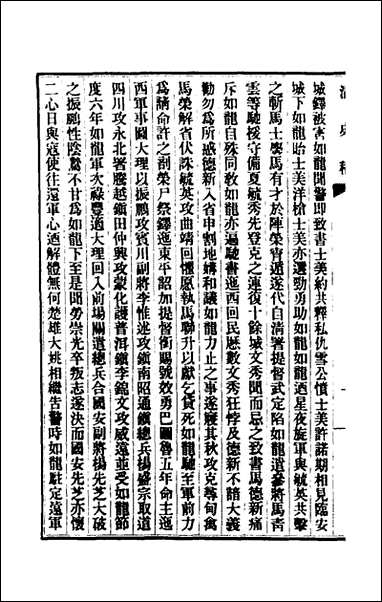 滇泉稿
城鐸被害如龍聞警即致書士美約共釋私仇雪公憤士美許諾期相見臨安
城下如龍貽士美洋槍士美亦選勁勇助如龍如龍迺星夜旋軍與毓英共擊
之斬馬士麐馬有才於陣榮宵遁遂代自清署提督武定陷如龍遣參將馬青
雲等馳援守備夏毓秀先登克之連復十餘城文秀聞而忌之致書馬德新痛
斥如龍自殊同教如龍亦遍馳書迤西回民歷數文秀狂悖及德新不諳大義
勸勿為所惑德新入省申割地媾和議如龍力止之事遂寢其秋攻克尋甸禽
馬榮解省伏誅毓英攻曲靖回懼愿執馬聯升以獻乞貸死如龍馳至軍前力
為請命許之剮榮尸祭鐸迤東平詔加提督銜賜號效勇巴圖魯五年命主迤
西軍事圖大理以振鵬攻賓川副將李惟述攻鎮南昭通鎮總兵楊盛宗取道
四川攻永北署騰越鎮田仲興攻蒙化護普洱鎮李錦文攻威遠並受如龍節
度六年如龍軍次祿豐適大理回入前場關道總兵合國安副將楊先芝大破
之振鵬性陰鷙不甘為如龍下至是聞勞崇光卒叛志遂決而國安先芝亦懷
二心日與寇使往還軍心迺解體無何楚雄大姚相繼告警時如龍駐定遠軍